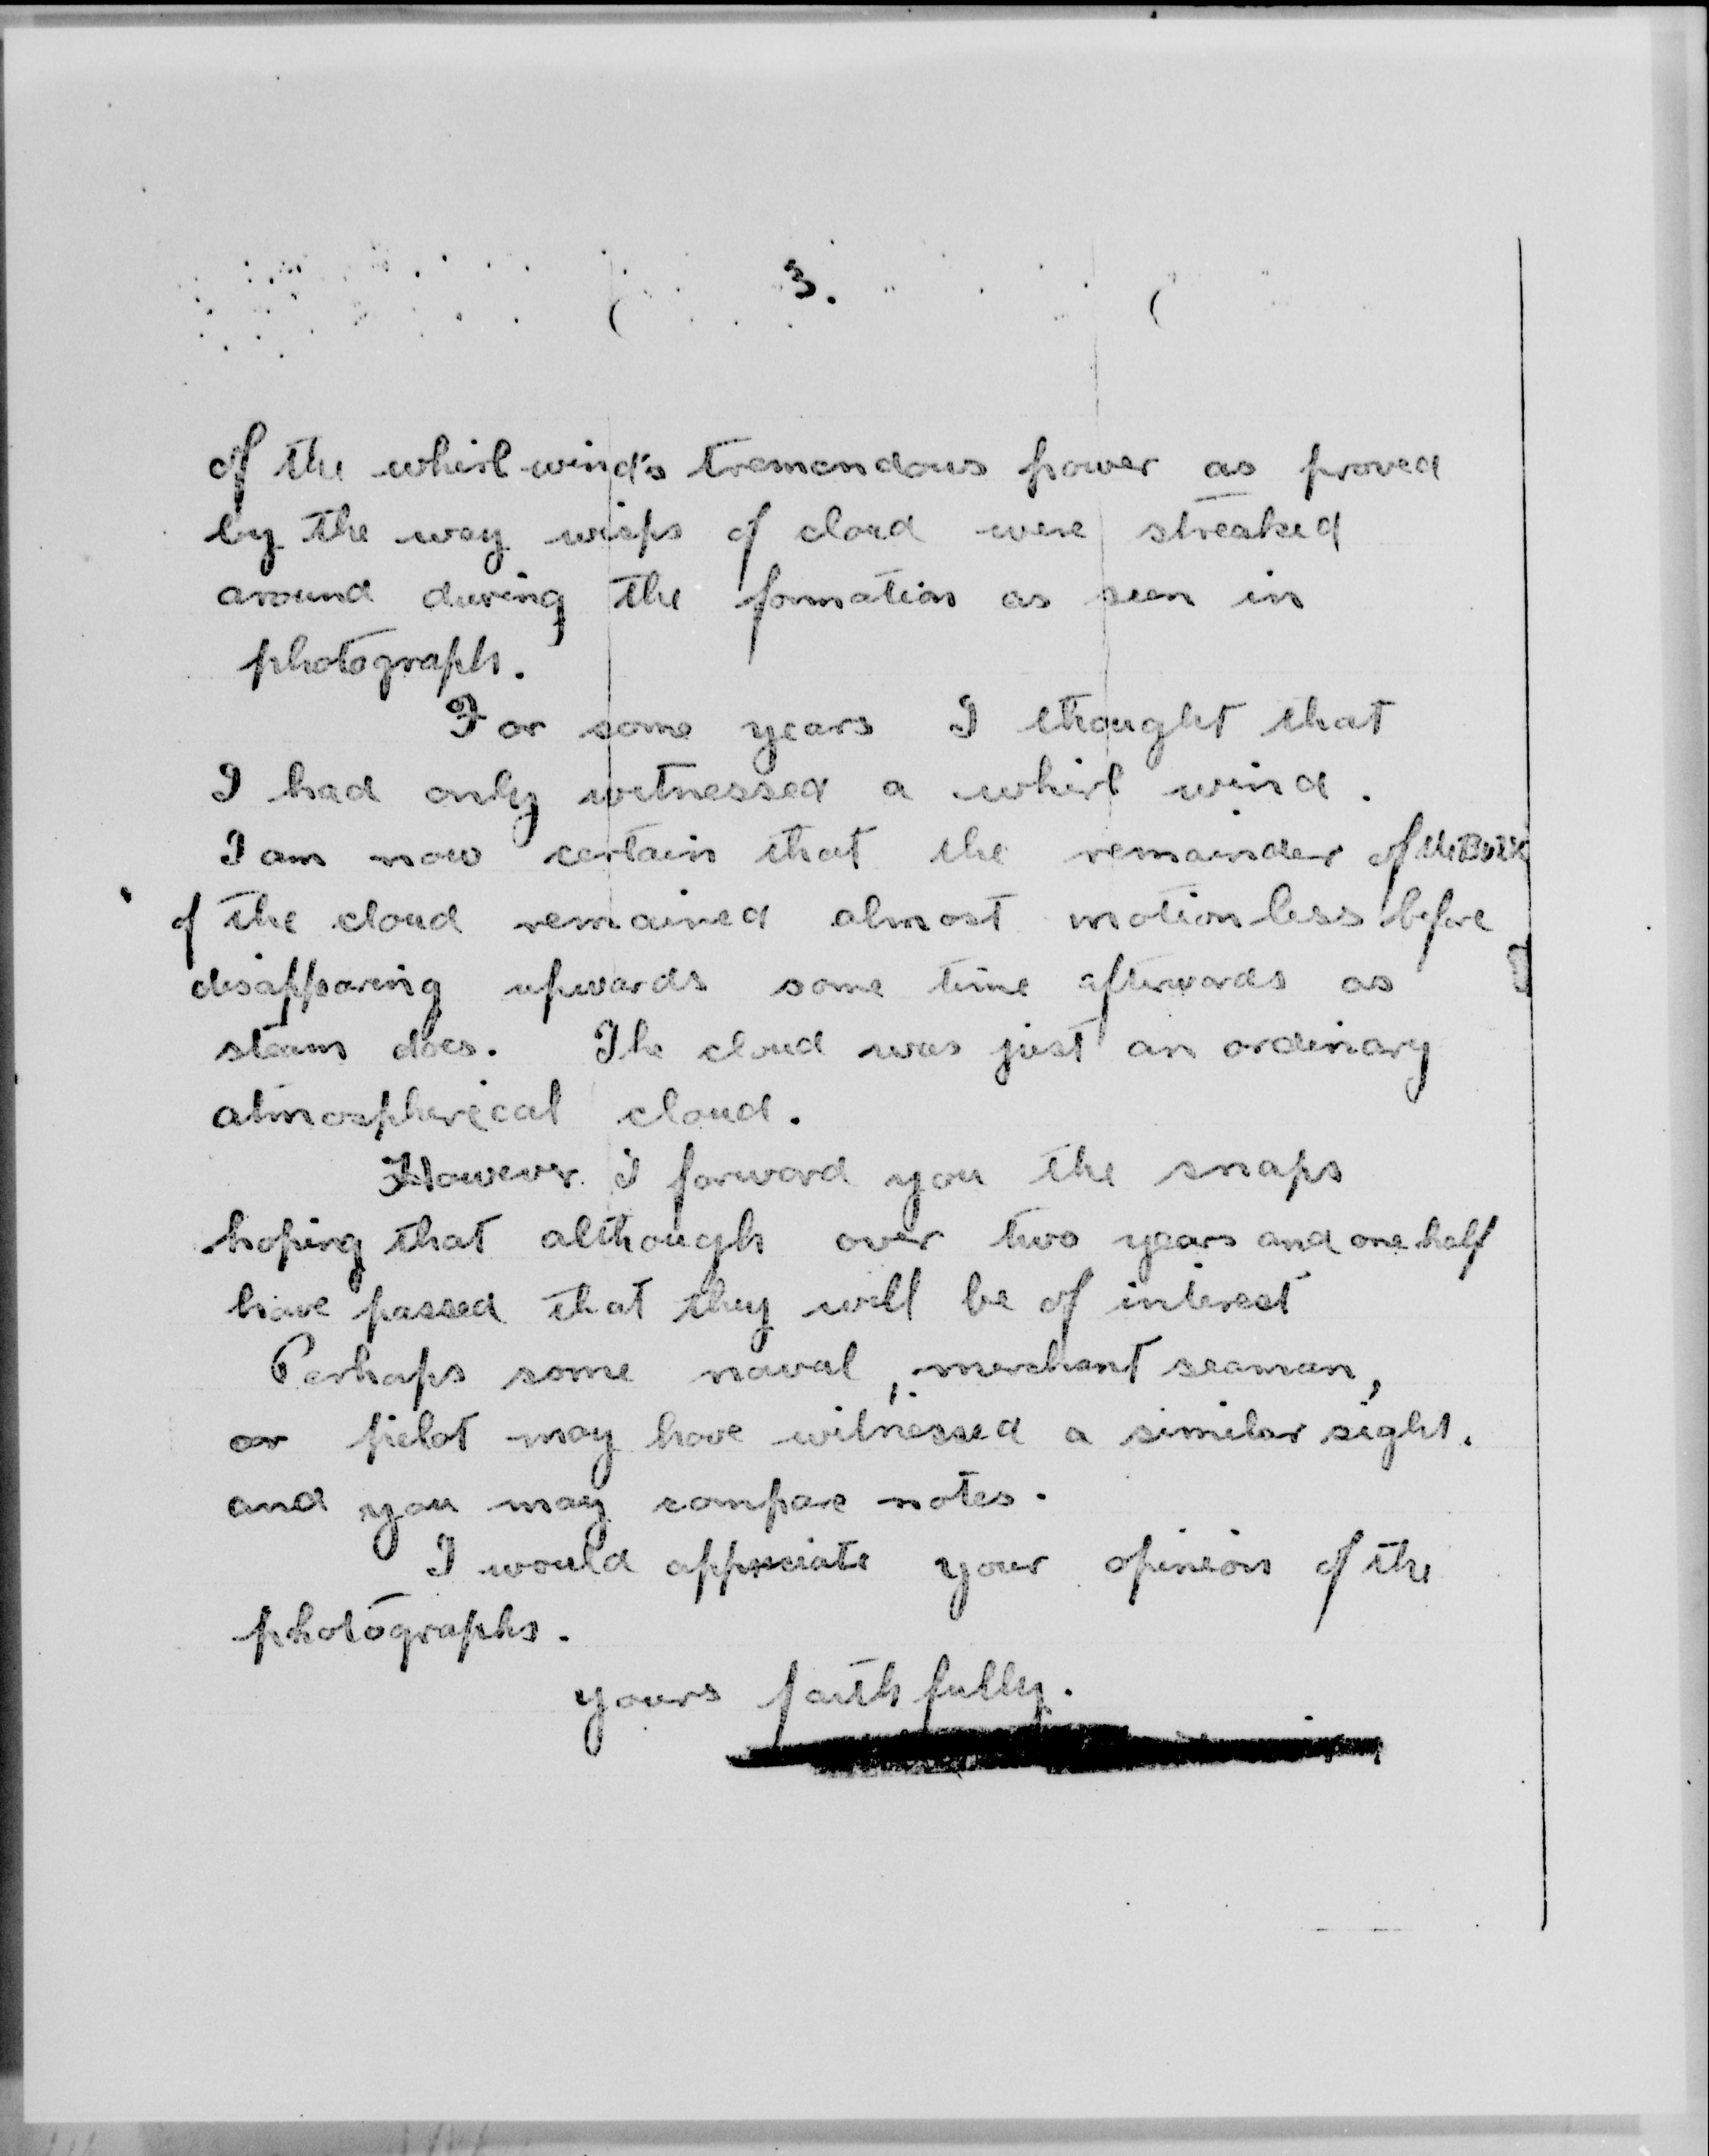 3.
of the whirl wind's tremendous power as proved
by the way wisps of cloud were streaked
around during the formation as seen in
photograph.
For some years I thought that
I had only witnessed a whirl wind.
I am now certain that the remainder of the Bulk
of the cloud remained almost motionless before
disapparing upwards some time afterwards as
steam does. The cloud was just an ordinary
atmospherical cloud.
However I forward you the snaps
hoping that although over two years and one half
have passed that they will be of interest
Perhaps some naval, merchant seaman,
or pilot may have witnessed a similar sight.
and you may compare notes.
I would appreciate your opinion of the
photographs.
yours faithfully.